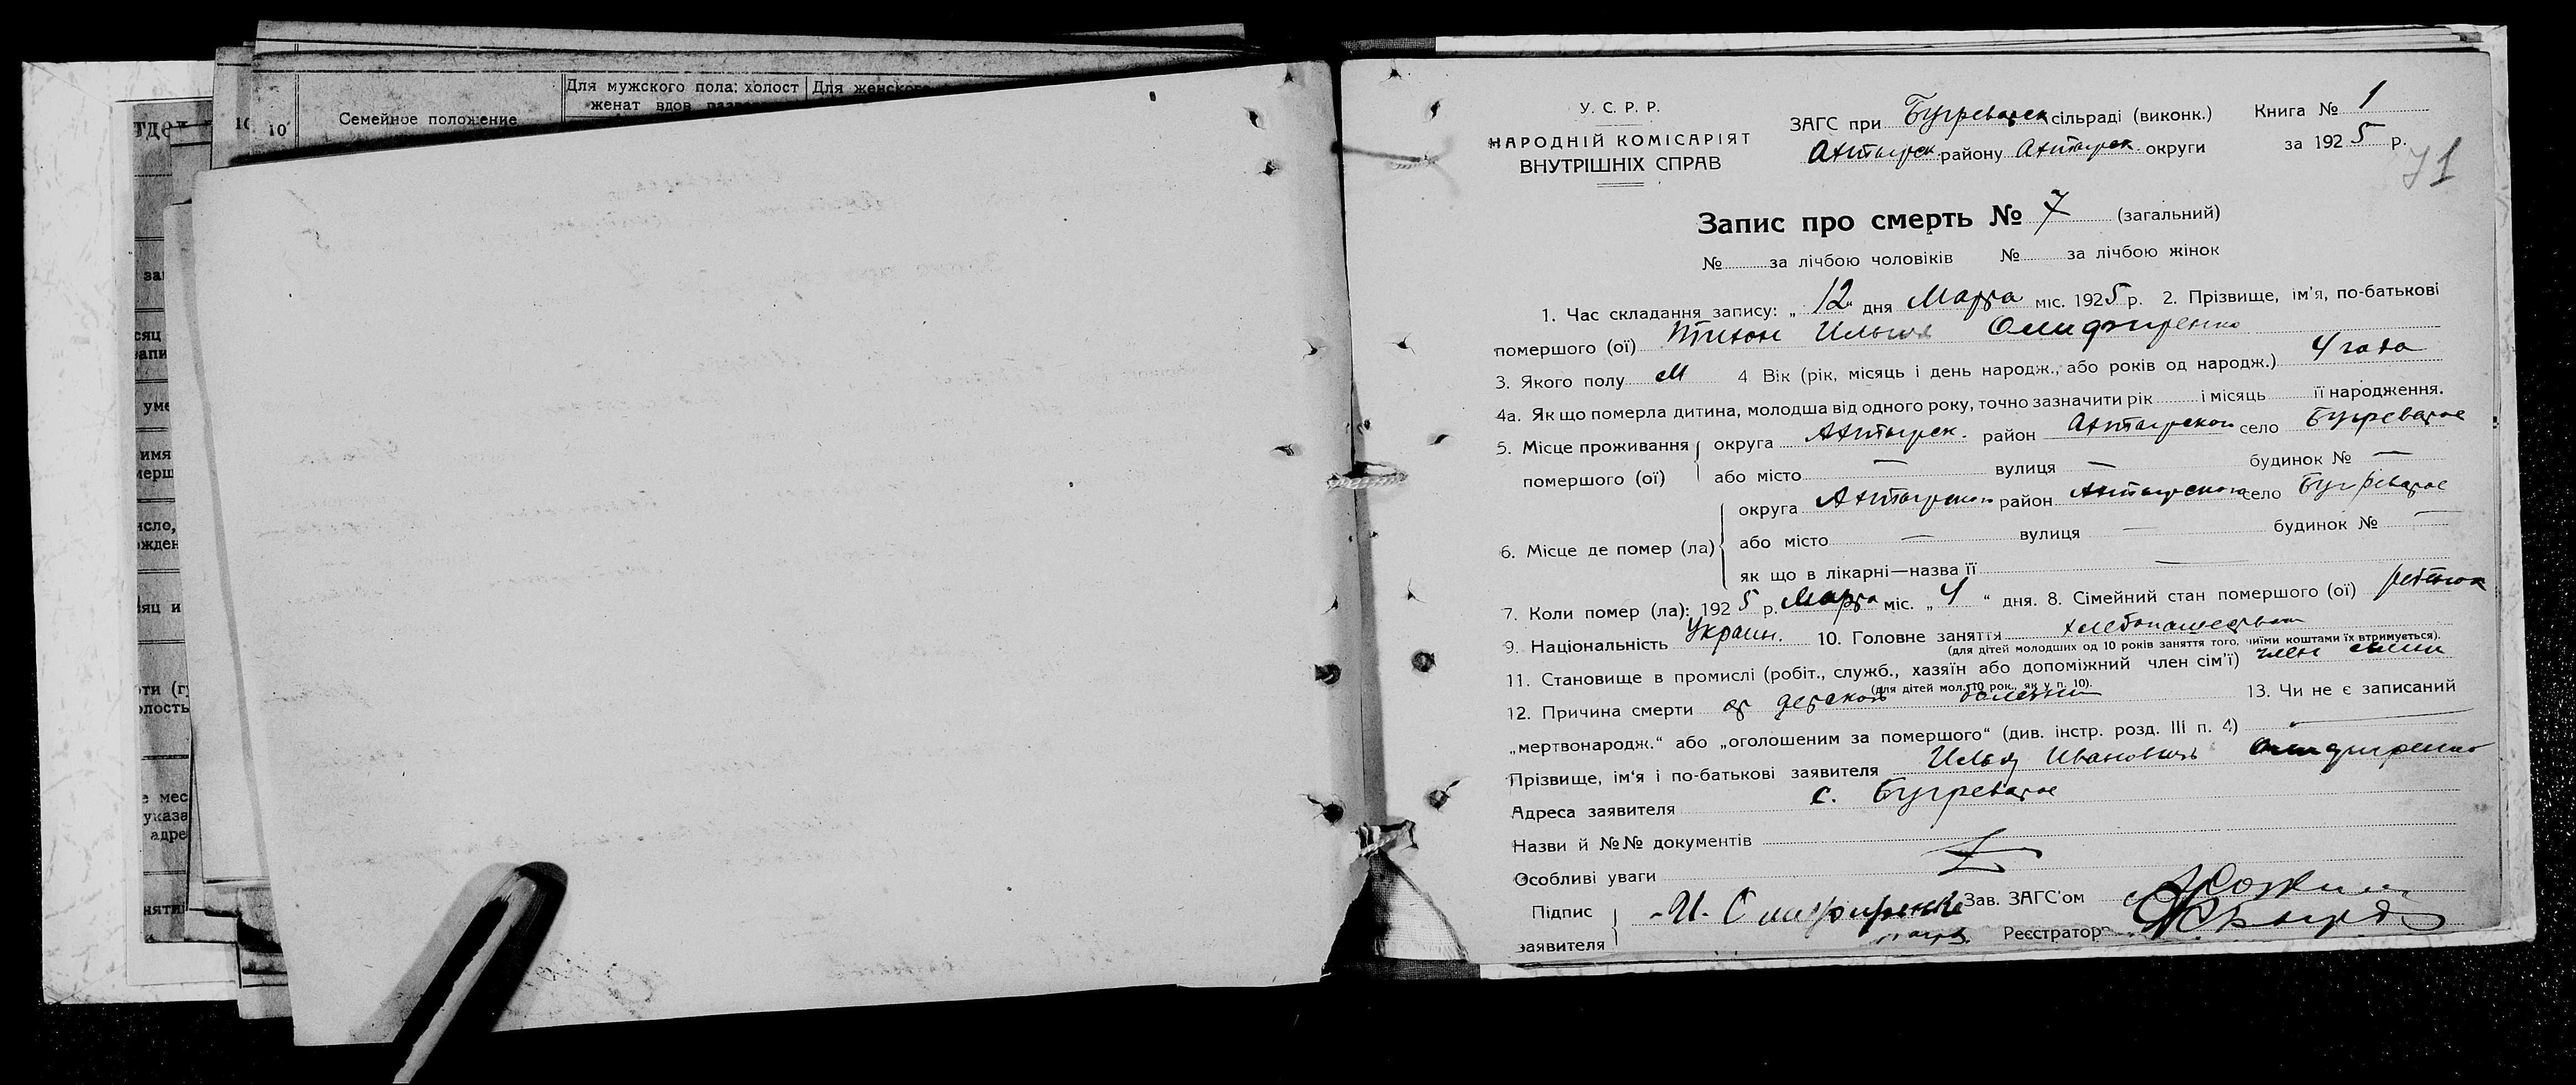 Для мужского пола: холост
женат вдов
Для женского
Семейное положение
10
10
за
сяц
запи
уме
имя
мерш
исло,
ожден
яц и
оти (г
олость
е мес
указа
адре
нятиі
У. С. Р. Р.
НАРОДНІЙ КОМІСАРІЯТ
ВНУТРІШНІХ СПРАВ
ЗАГС при Бугреватск сільраді (виконк.)
Ахтырск. району Ахтырск. округи
Книга № 1
за 1925 р.
71
Запис про смерть № 7 (загальний)
№ за лічбою чоловіків № за лічбою жінок
1. Час складання запису: „12“ дня Марта міс. 1925 р. 2. Прізвище, ім'я, по-батькові
помершого (ої) Тихон Ильич Олифиренко
3. Якого полу м 4 Вік (рік, місяць і день народж., або років од народж.) 4 года
4а. Як що померла дитина, молодша від одного року, точно зазначити рік і місяць її народження.
5. Місце проживання округа Ахтырск. район Ахтырского село Бугреватое
помершого (ої) або місто — вулиця — будинок № —
округа Ахтырского район Ахтырского село Бугреватое
6. Місце де помер (ла) або місто — вулиця — будинок № —
як що в лікарні—назва її —
7. Коли помер (ла): 1925 р. Марта міс. „4“ дня. 8. Сімейний стан помершого (ої) ребенок
9. Національність Украин. 10. Головне заняття хлебопашество
(для дітей молодших од 10 років заняття того, чиїми коштами їх втримується).
11. Становище в промислі (робіт., служб., хазяїн або допоміжний член сім'ї) член семьи
(для дітей мол. 10 рок., як у п. 10).
12. Причина смерти от детской болезни 13. Чи не є записаний
„мертвонародж.“ або „оголошеним за помершого“ (див. інстр. розд. III п. 4) —
Прізвище, ім'я і по-батькові заявителя Илья Иванович Олифиренко
Адреса заявителя с. Бугреватое
Назви й №№ документів
Особливі уваги
Підпис
заявителя И. Олифиренко
Зав. ЗАГС'ом
Реєстратор